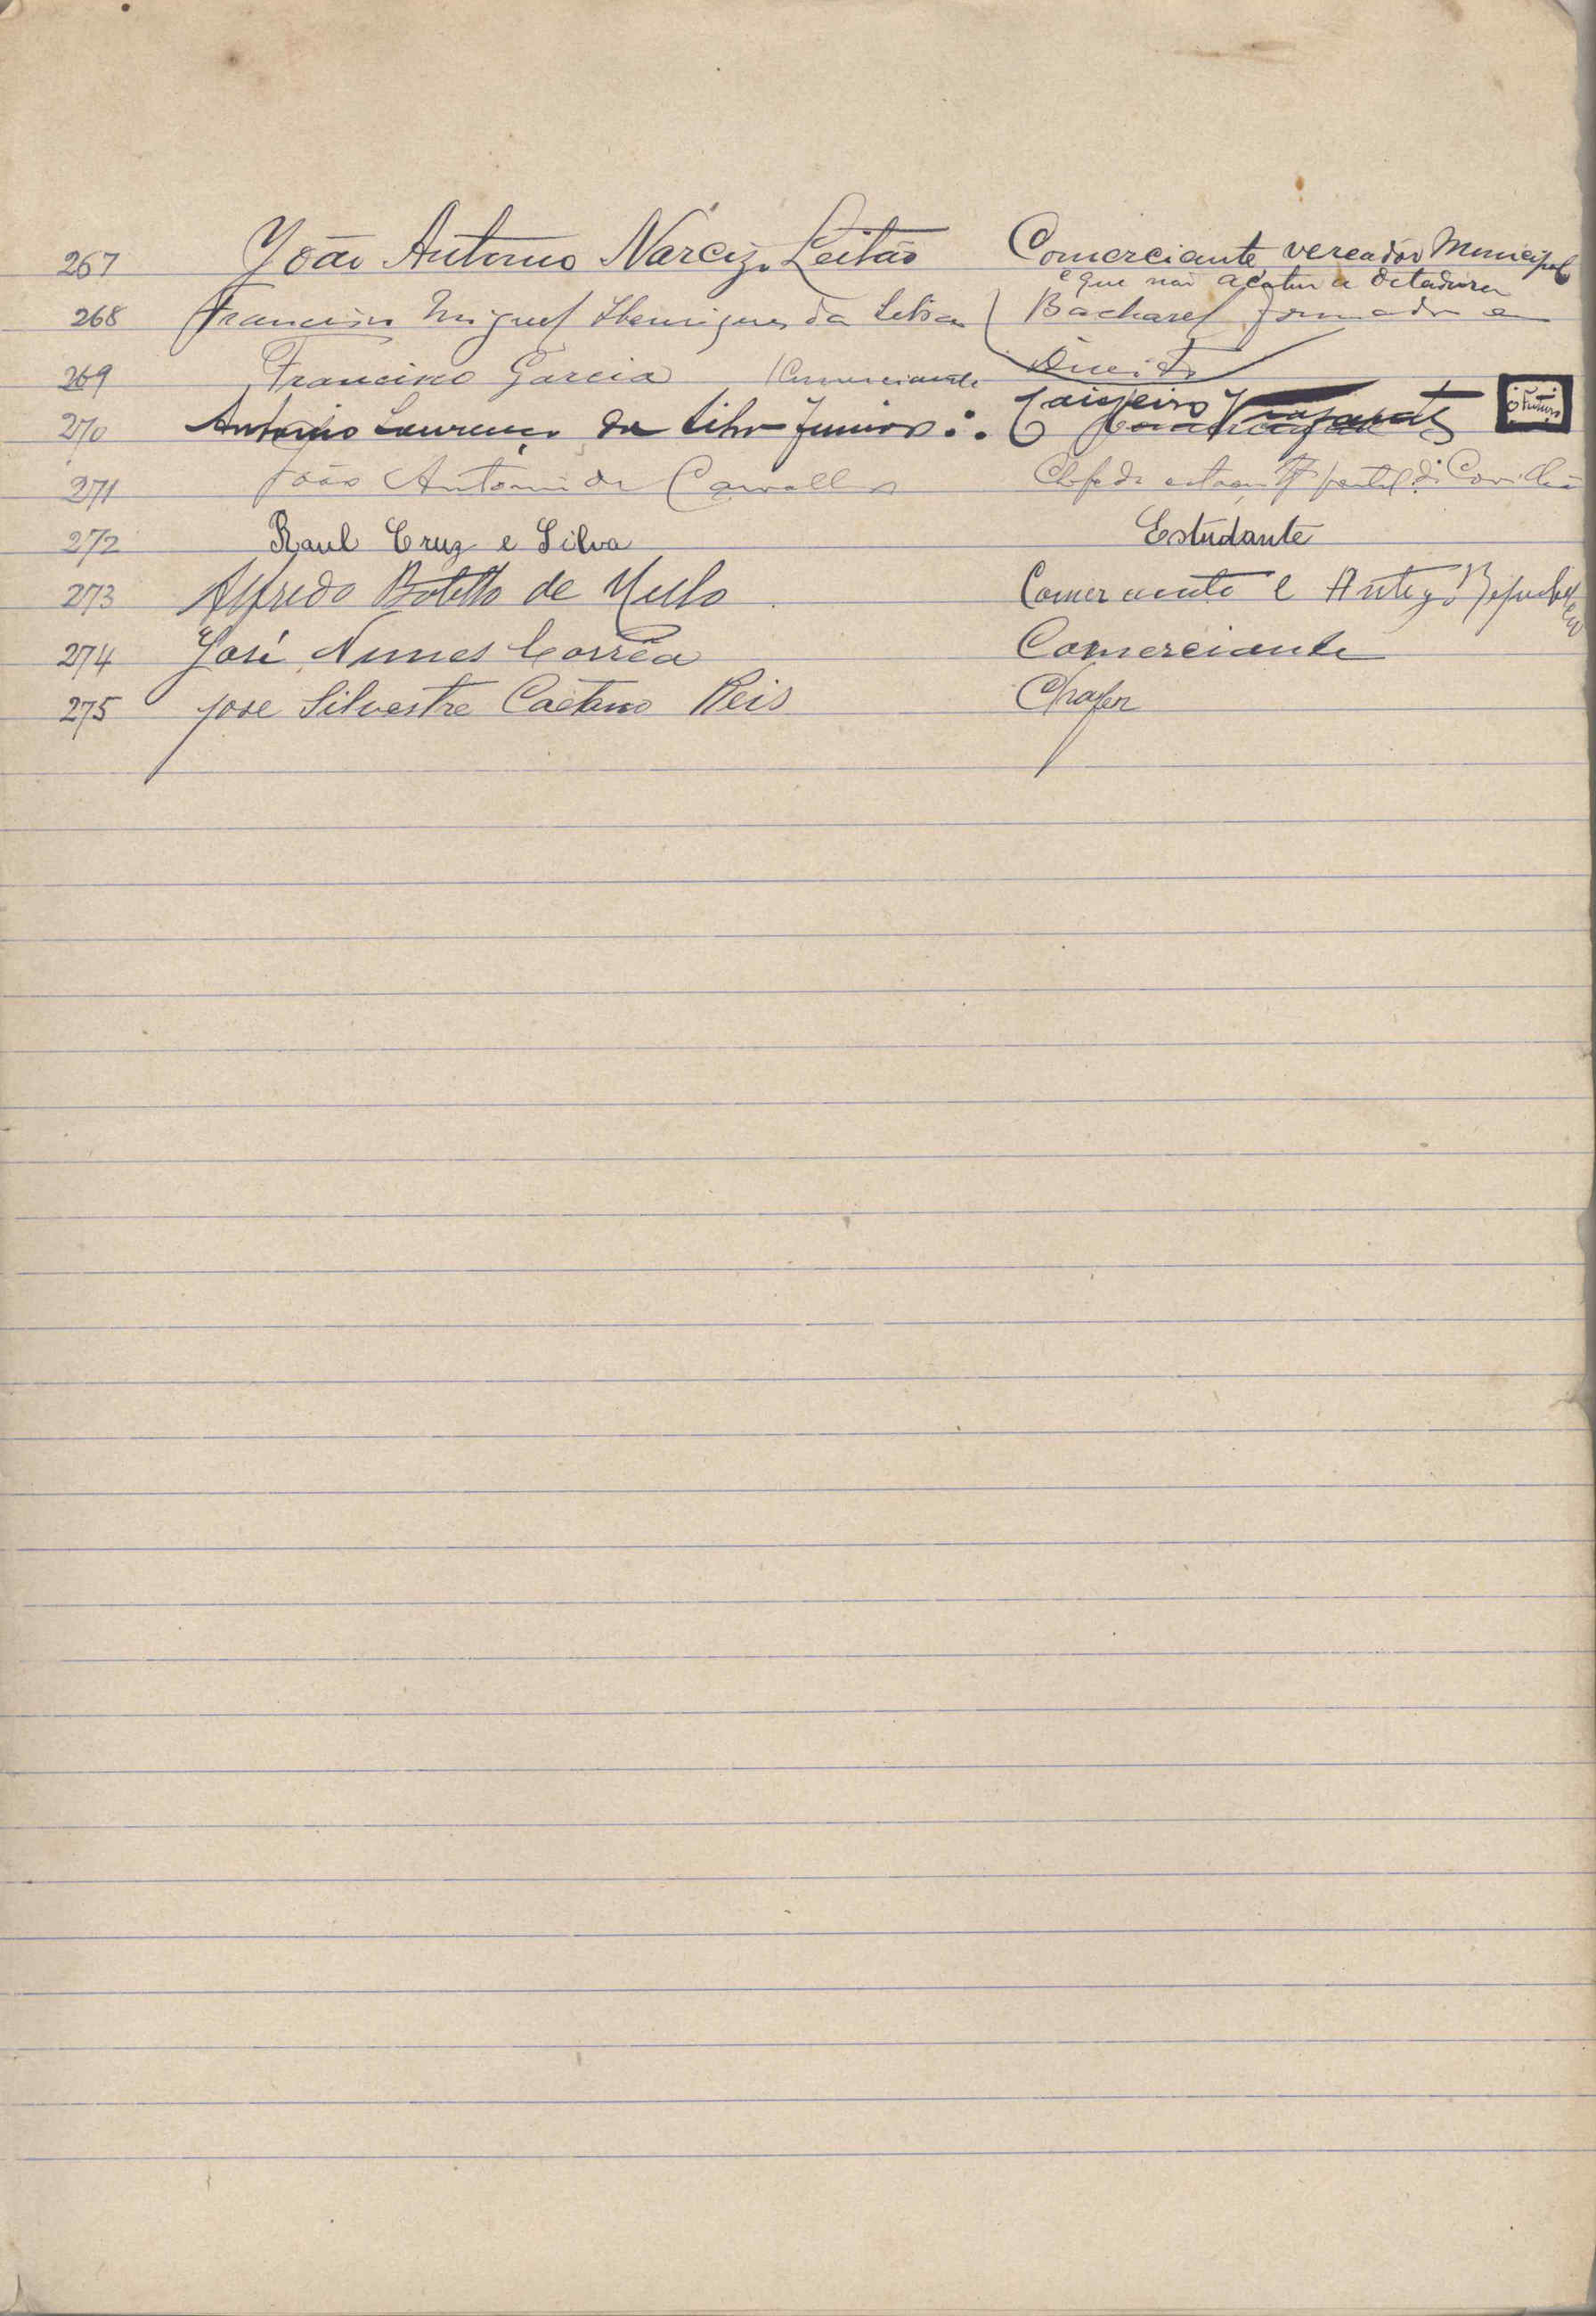 267 João Antonio Narcizo Leitão Comerciante vereador Municipal
e que não acatou a ditadura
268 Francisco Miguel Henriques da Silva Bacharel formado em
Direito
269 Francisco Garcia Comerciante
270 Antonio Lourenço da Silva Junior Caixeiro
271 João Antonio de Carvalho Chefe de Covilhã
272 Raul Cruz e Silva Estudante
273 Alfredo Botelho de Mello Comerciante e Antigo Republicano
274 José Nunes Corrêa Comerciante
275 José Silvestre Caetano Reis Chofer